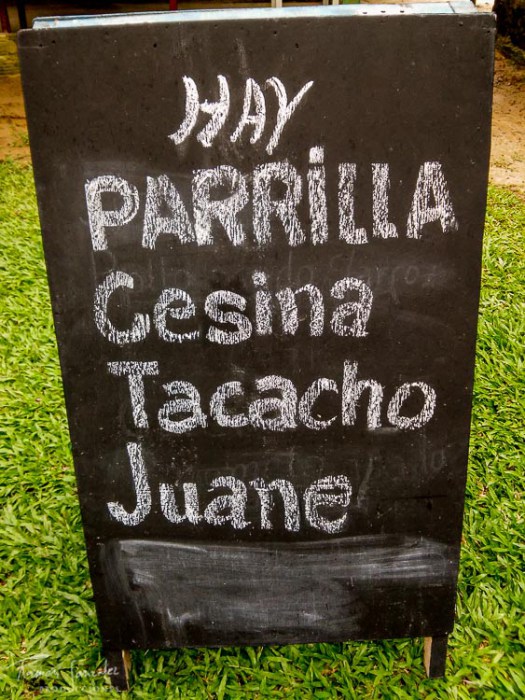 HAY
PARRiLLA
Cesina
Tacacho
Juane